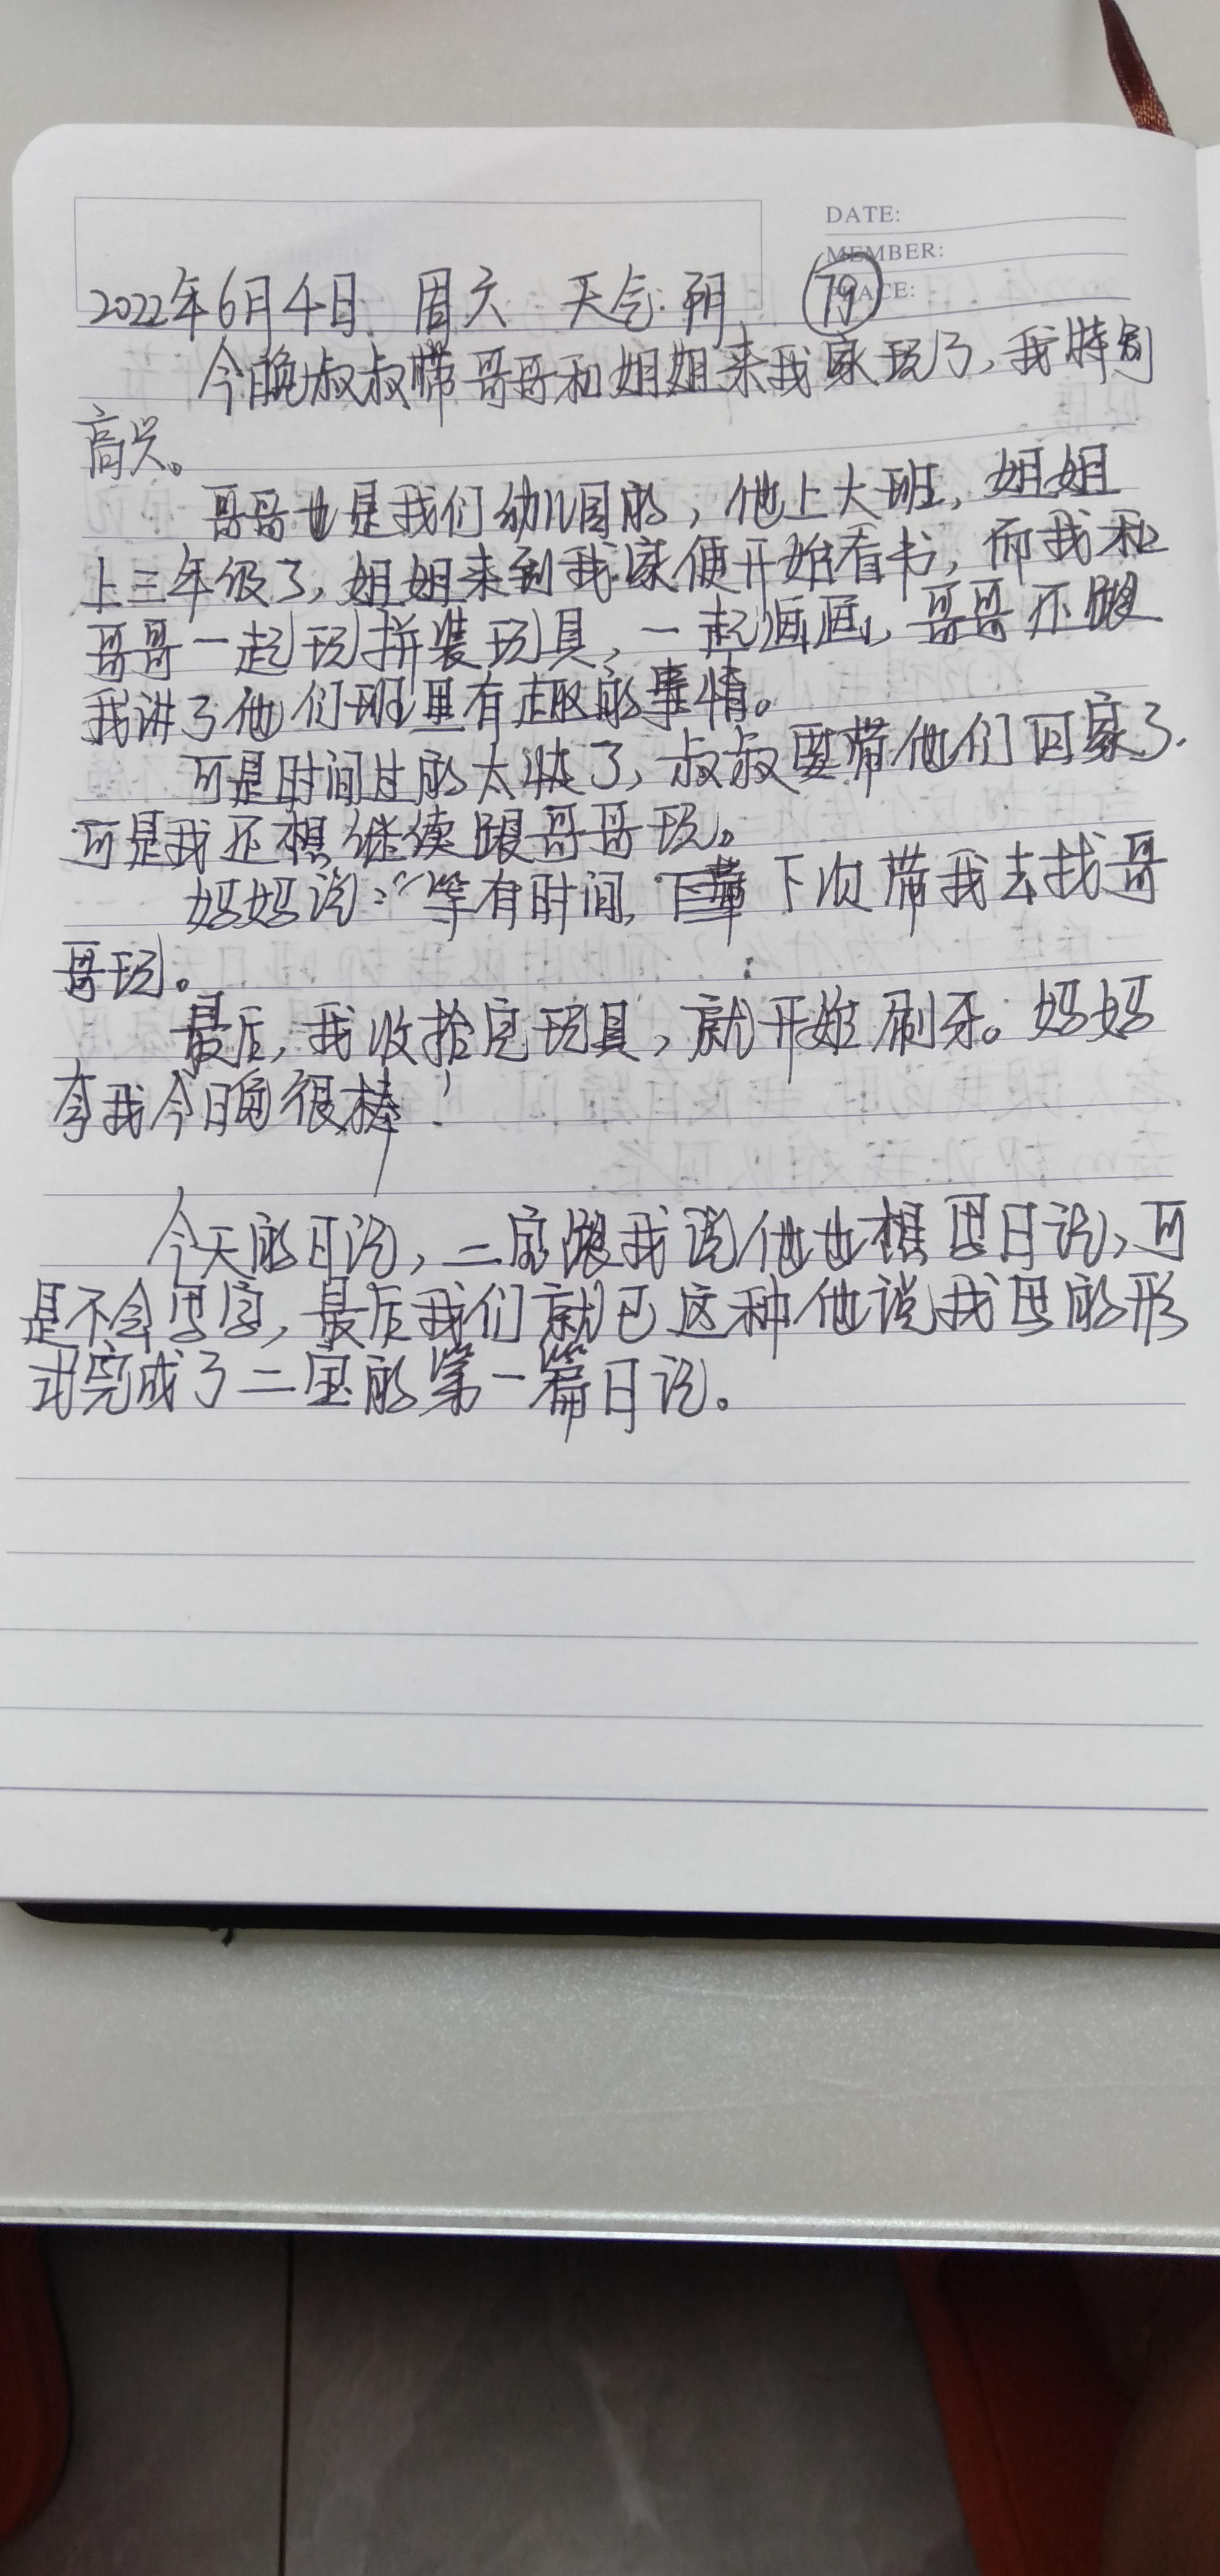 DATE:
MEMBER:
2022年6月4日 周六 天气:阴 79
今晚叔叔带哥哥和姐姐来我家玩了,我特别
高兴。
哥哥也是我们幼儿园的,他上大班,姐姐
上三年级了,姐姐来到我家便开始看书,而我和
哥哥一起玩拼装玩具,一起画画,哥哥还跟
我讲了他们班里有趣的事情。
可是时间过的太快了,叔叔要带他们回家了.
可是我还想继续跟哥哥玩。
妈妈说:“等有时间,下次带我去找哥
哥玩。
最后,我收拾完玩具,就开始刷牙。妈妈
夸我今晚很棒!
今天的日记,二宝跟我说他也想写日记,可
是不会写字,最后我们就已这种他说我写的形
式完成了二宝的第一篇日记。